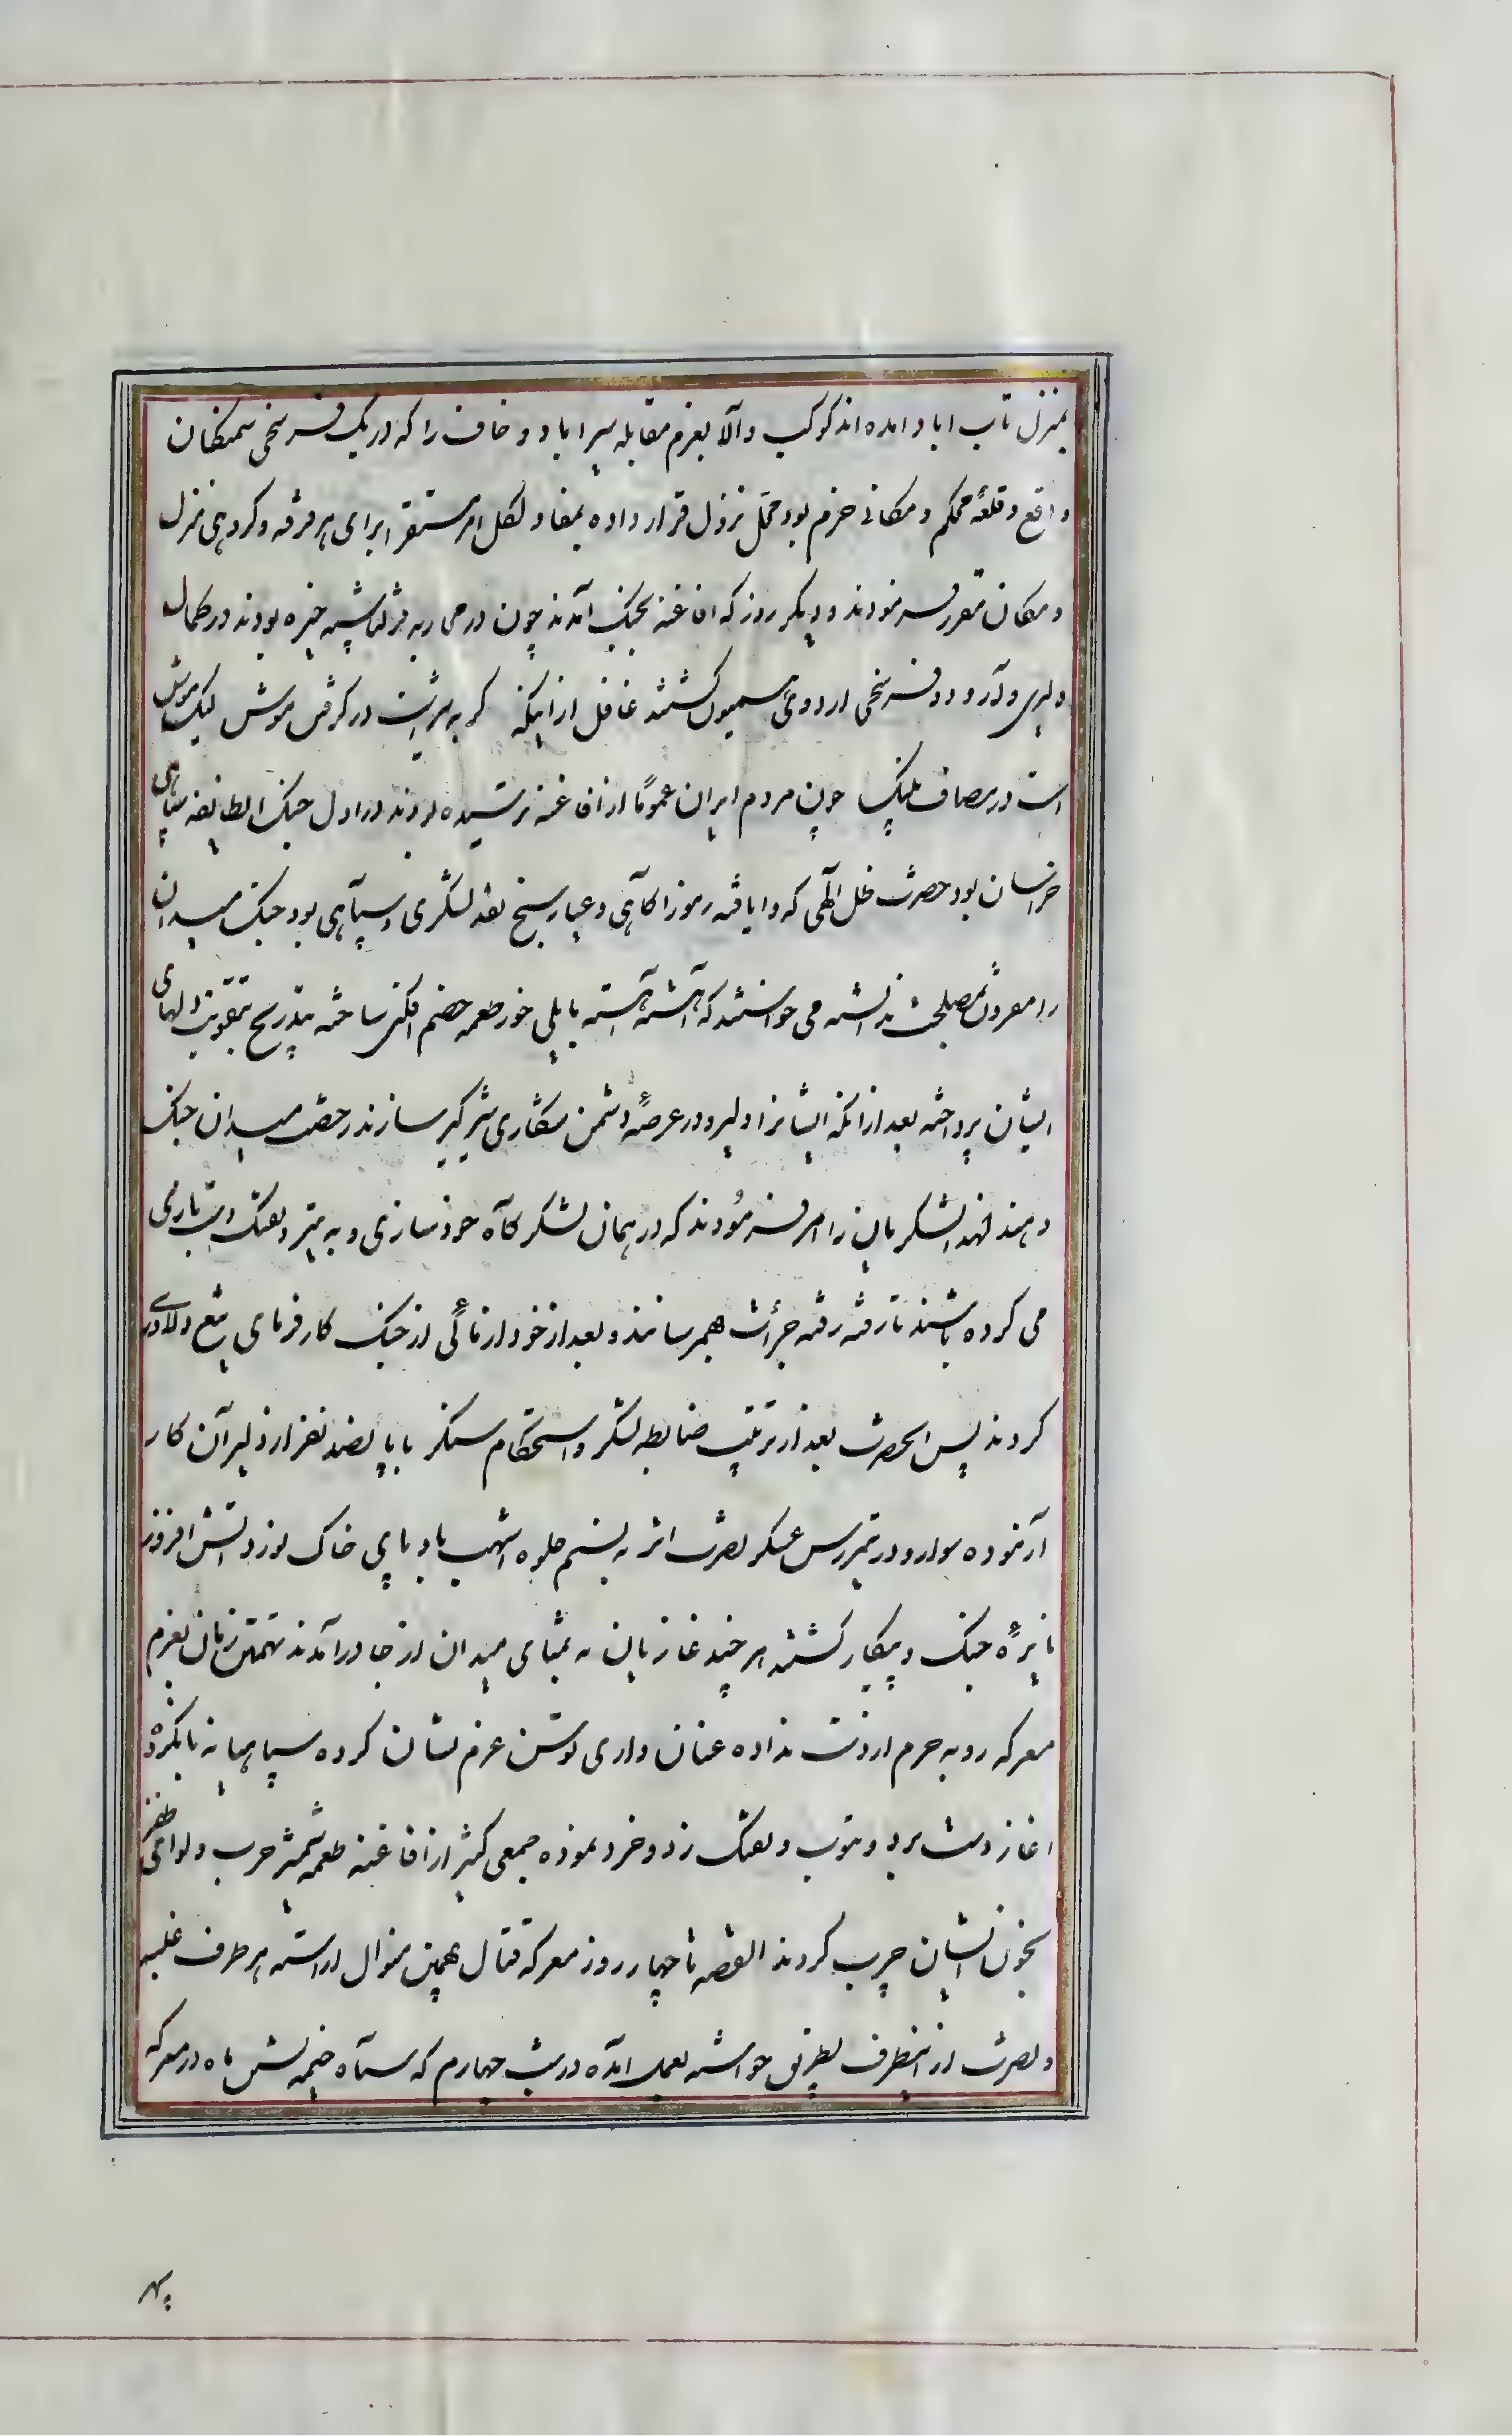 بمنزل تاب اباد امده اند کوکب والا بعزم مقابله سیراباد و خاف را که در یک فرسخی سمنکان
واقع و قلعهٔ محکم و مکانی خرم بود محل نزول قرار داده بمفاد لکل امر مستقر برای هر فرقه و کروهی منزل
و مکان مقرر فرمودند و دیکر روز که افاغنه بجنک آمدند چون در محاربه قزلباشیه خیره بودند در کمال
دلیری وارد دو فرسخی اردوی همیون کشتند غافل ازاینکه کربه شیر است در کرفتن موش لیک موش
است در مصاف پلنک چون مردم ایران عموماً از افاغنه ترسیده بودند و اول جنک انطایفه با سپاهی
خراسان بود حضرت ظل الهی که دایافته رموز اکاهی و عیار سنج نقد لشکری و سپاهی بود جنک میدان
را مقرون بمصلحت ندانسته می خواستند که آهسته آهسته بابلی خود طعمه خصم افکنی ساخته بتدریج بتقویت دلهای
ایشان پرداخته بعد ازانکه ایشانرا دلیر و در عرصهٔ دشمن شکاری شیرکیر سازند رخصت میدان جنک
دهند لهذا لشکریان را امر فرمودند که در همان لشکرکاه خودسازی و به تیر و تفنک دست بازی
می کرده باشند تا رفته رفته جرأت بهمرسانند و بعد از خود ازمائی از جنک کارفرمای تیغ دلاوری
کردند پس انحضرت بعد از ترتیب ضابطه لشکر و استحکام سنکر با پانصد نفر از دلیران کار
آزموده سوار و در تیررس عسکر نصرت اثر به نسیم جلوه اشهب باد پای خاک نورد آتش افروز
نایرهٔ جنک و پیکار کشته هر چند غازیان به تمنای میدان از جا درآمدند تهمتن زمان بعزم
معرکه رو به حزم رخصت نداده عنان داری توسن عزم ایشان کرده سپاهیانه بانکروه
اغاز دست برد و بتوپ و تفنک زد و خورد نموده جمعی کثیر از افاغنه طعمه شمشیر حرب و لوای ظفر
بخون ایشان چرب کردند القصه تا چهار روز معرکه قتال بهمین منوال اراسته هر طرف غلبه
و نصرت از اینطرف بطریق خواسته بعمل آمده در شب چهارم که سپاه خیمه نشین ماه در معرکه
سپهر